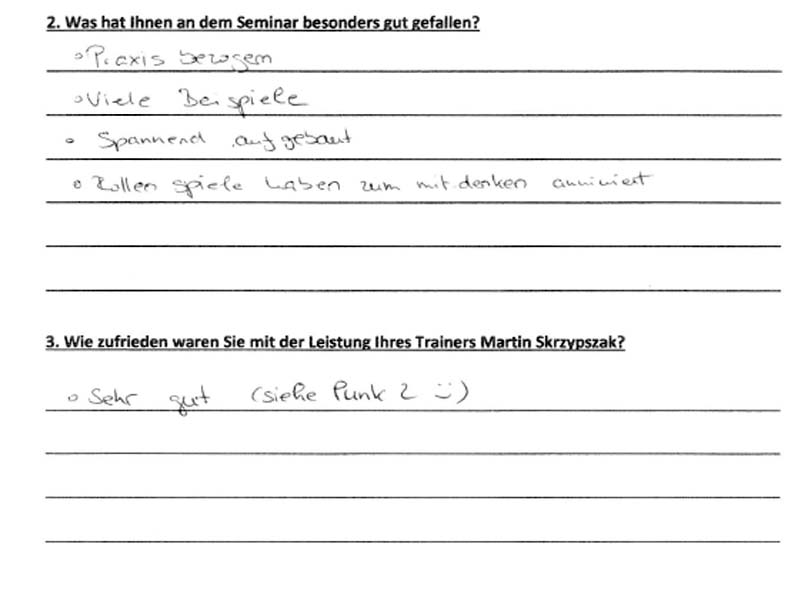 2. Was hat Ihnen an dem Seminar besonders gut gefallen?
◦ Praxis bezogem
◦ Viele Beispiele
◦ Spannend aufgebaut
◦ Rollen spiele haben zum mitdenken annimiert
3. Wie zufrieden waren Sie mit der Leistung Ihres Trainers Martin Skrzypszak?
◦ Sehr gut (siehe Punk 2 ü)